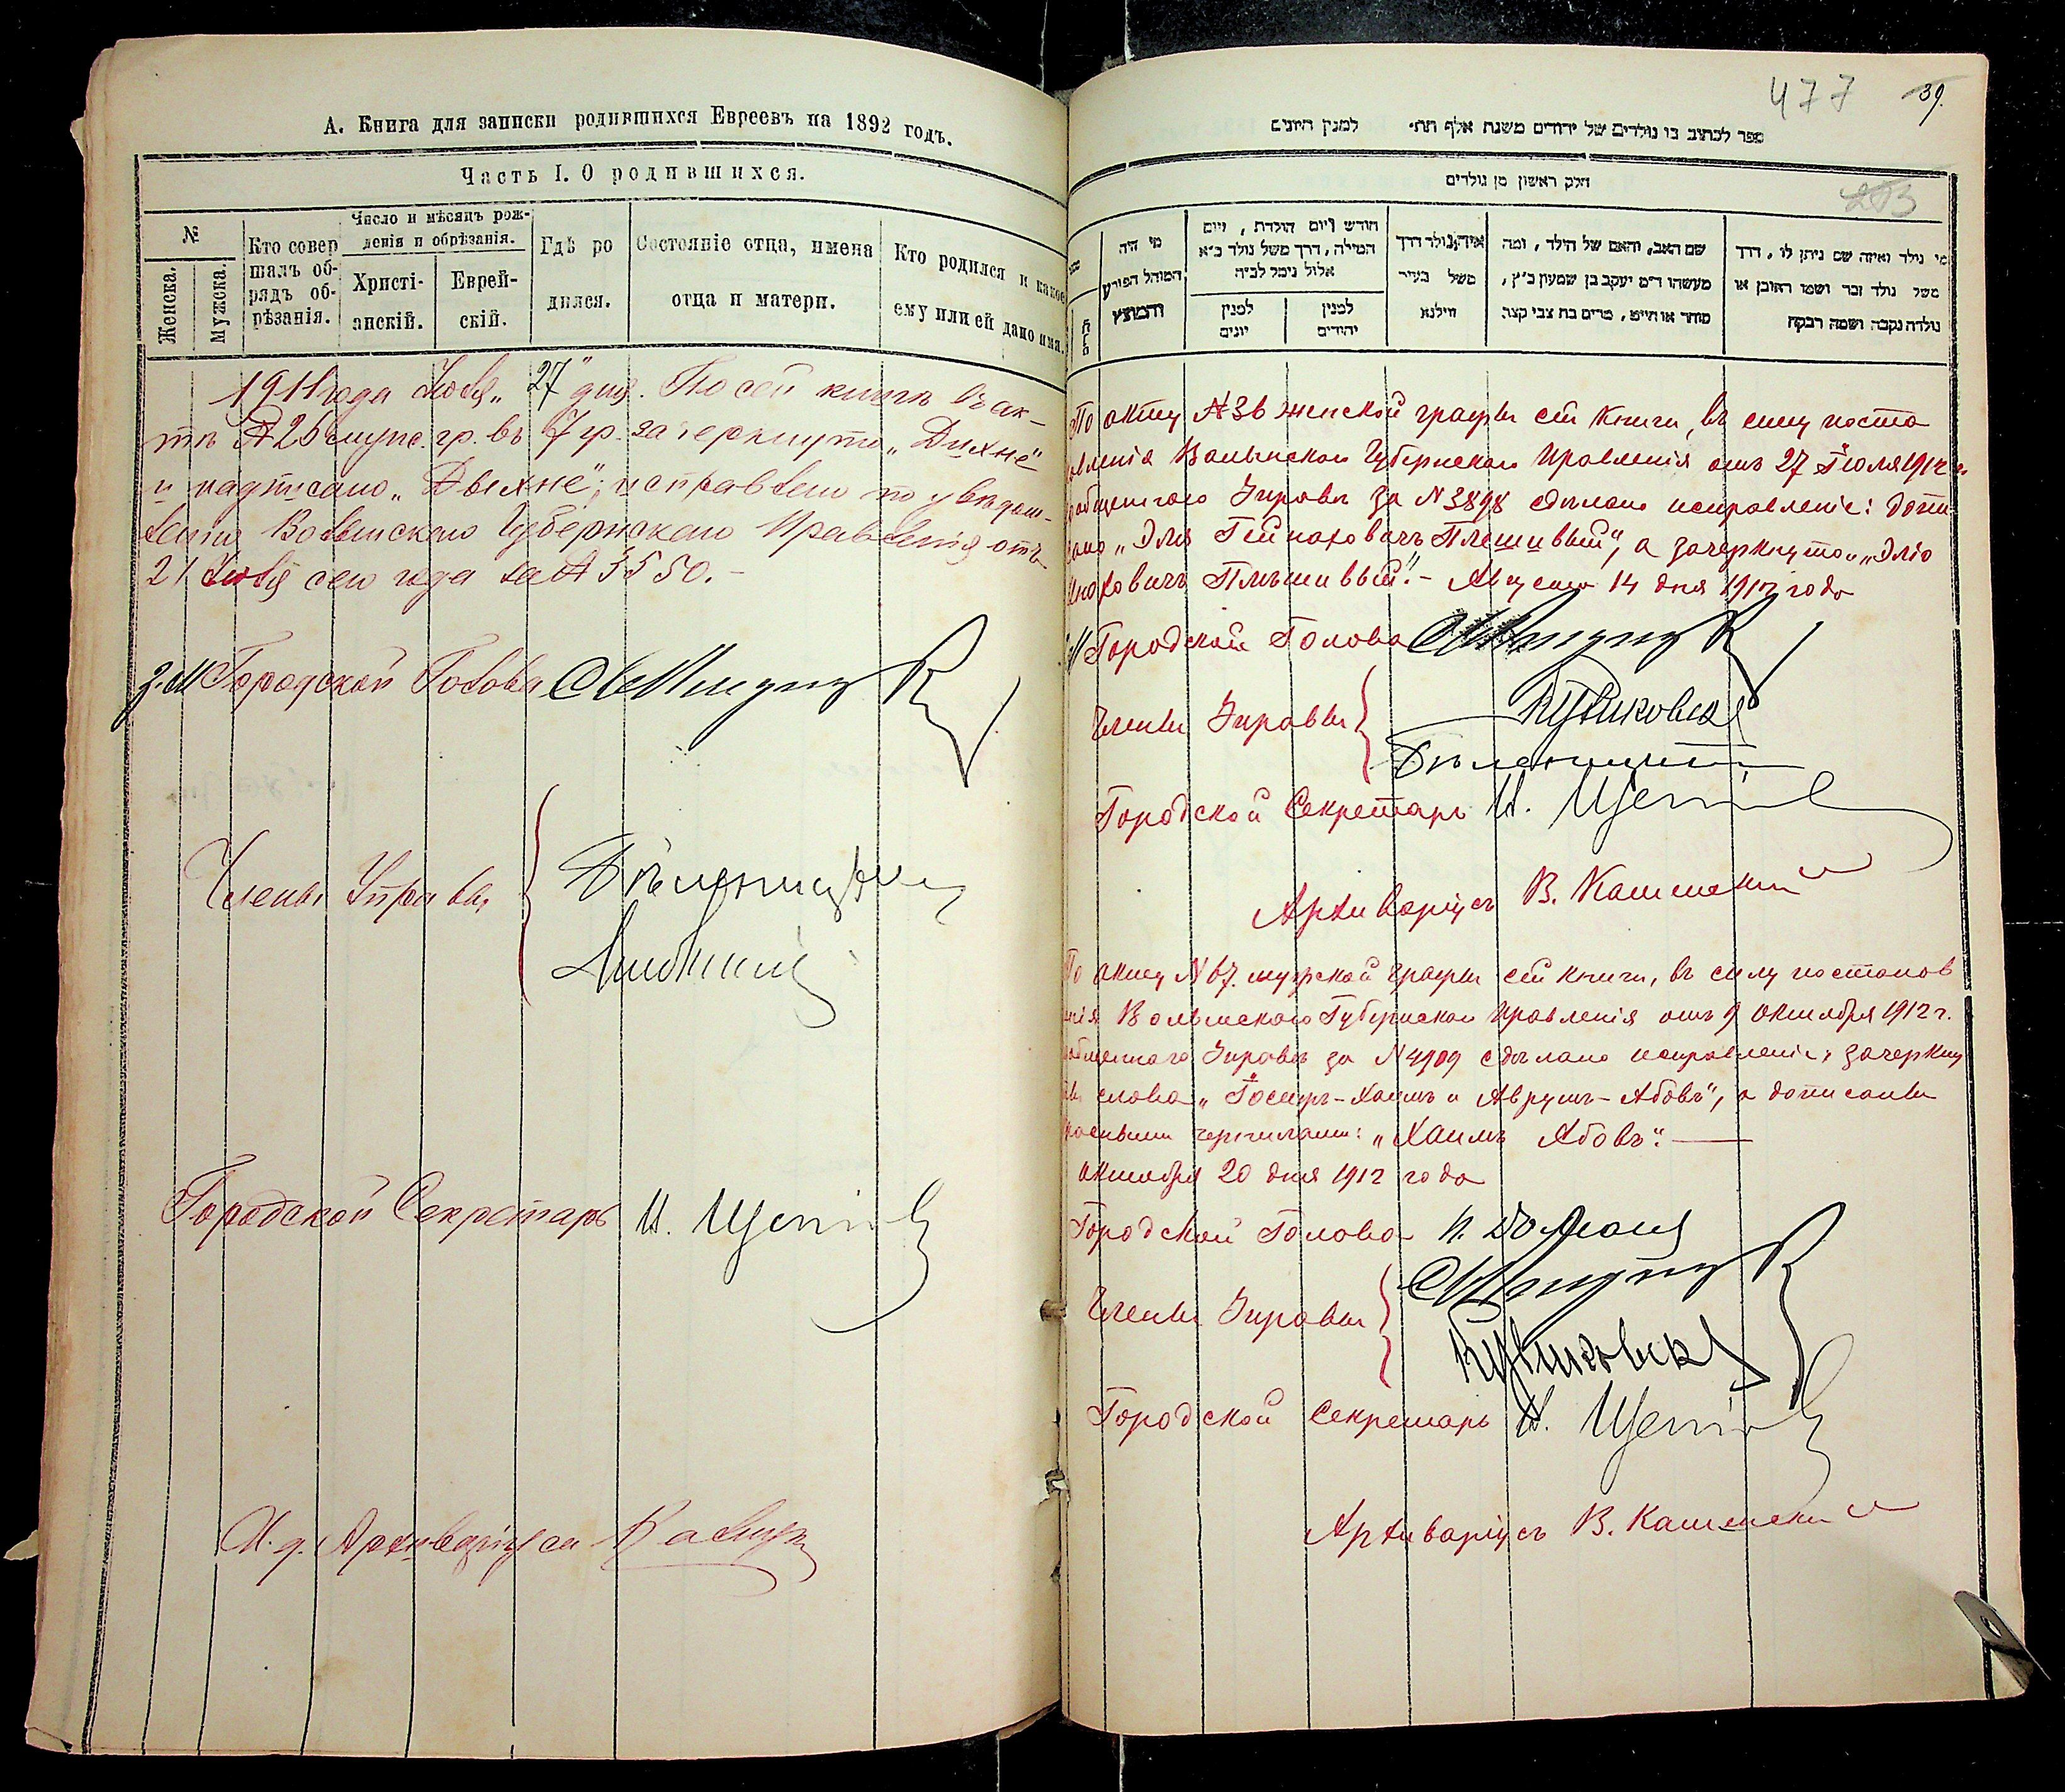 А. Книга для записки родившихся Евреевъ на 1892 годъ.
Часть I. О родившихся.
№
Женска.
Мужска.
Кто совер
шалъ об-
рядъ об-
рѣзанія.
Число и мѣсяцъ рож-
денія и обрѣзанія.
Христі-
анскій.
Еврей-
скій.
Гдѣ ро
дился.
Состояніе отца, имена
отца и матери.
Кто родился и какое
ему или ей дано имя.
1911 года Іюля „27" дня. По сей книгѣ въ ак-
тѣ № 26 мужс. гр. въ 7 гр. зачеркнуто „Дихне"
и надписано „Двыхне"; исправлено по увѣдом-
ленію Волынскаго Губернскаго Правленія отъ
21 Іюля сего года за № 3550.-
З. М. Городской Голова
Члены Управы
Городской Секретарь И.
И. д. Архиваріуса
477 39.
ספר לכתוב בו נולדים של יהודים משנת אלף תת״ למנין היונים
חלק ראשון מן נולדים
מי היה
המוהל הפורע
והמוצץ
חודש ויום הולדת, ויום
המילה, דרך משל נולד כ״א
אלול נימל לב״ה
למנין
יונים
למנין
יהודים
איה נולד דרך
משל בעיר
ווילנא
שם האב, והאם של הילד, ומה
מעשהו ד״מ יעקב בן שמעון כ״ץ,
סוחר או חייט, מרים בת צבי קצב
מי נולד ואיזה שם ניתן לו, דרך
משל נולד זכר ושמו ראובן או
נולדה נקבה ושמה רבקה
По акту № 36 женской графы сей книги, въ силу поста
овленія Волынскаго Губернскаго Правленія отъ 27 Іюля 1912 г.
ообщеннаго Управѣ за № 3898 сдѣлано исправленіе: допи
сано „Эля Гейнаховичъ Плешивый", а зачеркнуто „Эліо
Гнаховичъ Плѣшивый".- Августа 14 дня 1912 года
Городской Голова
Члены Управы
Городской Секретарь И.
Архиваріусъ В.
По акту № 67 мужской графы сей книги, въ силу постанов
енія Волынскаго Губернскаго Правленія отъ 9 октября 1912 г.
ообщеннаго Управѣ за № 4909 сдѣлано исправленіе: зачеркну
ты слова „Іосифъ-Хаимъ и Аврумъ-Абовъ", а дописаны
красными чернилами: „Хаимъ Абовъ".—
октября 20 дня 1912 года
Городской Голова
Члены Управы
Городской Секретарь И.
Архиваріусъ В.